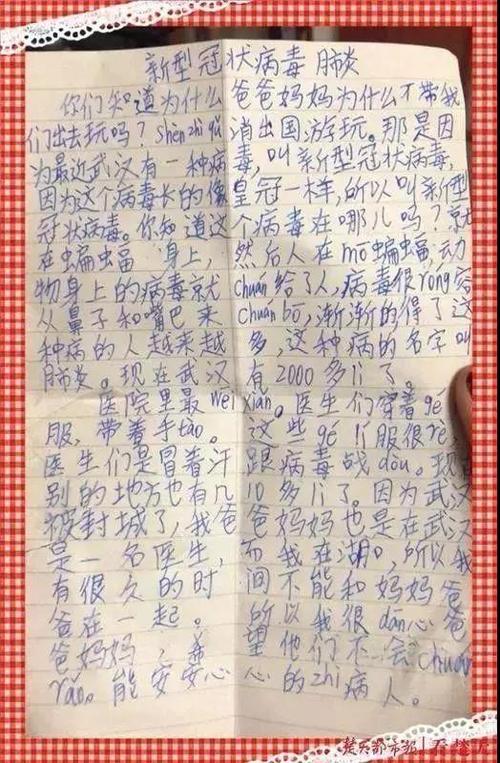 新型冠状病毒肺炎
你们知道为什么爸爸妈妈为什么不带我
们出去玩吗？shèn zhì qǔ消出国游玩。那是因
为最近武汉有一种病毒,叫新型冠状病毒,
因为这个病毒长的像皇冠一样,所以叫新型
冠状病毒。你知道这个病毒在哪儿吗？就
在蝙蝠身上,然后人在mō蝙蝠,动
物身上的病毒就chuán给了人,病毒很róng容
从鼻子和嘴巴来chuán bō,渐渐的得了这
种病的人越来越多,这种病的名字叫
肺炎。现在武汉有2000多例了。
医院里最wēi xiǎn。医生们穿着gé
服,带着手tào。这些gé 服很rè,
医生们是冒着汗跟病毒战dòu。现
别的地方也有几10多例了。因为武汉
被封城了,我爸爸妈妈也是在武汉
是一名医生,而我在湖口,所以我
有很久的时间不能和妈妈爸
爸在一起。所以我很dān心爸
爸妈妈,希望他们不会chuán
rǎn。能安安心心的zhì病人。
楚天都市报|看楚天